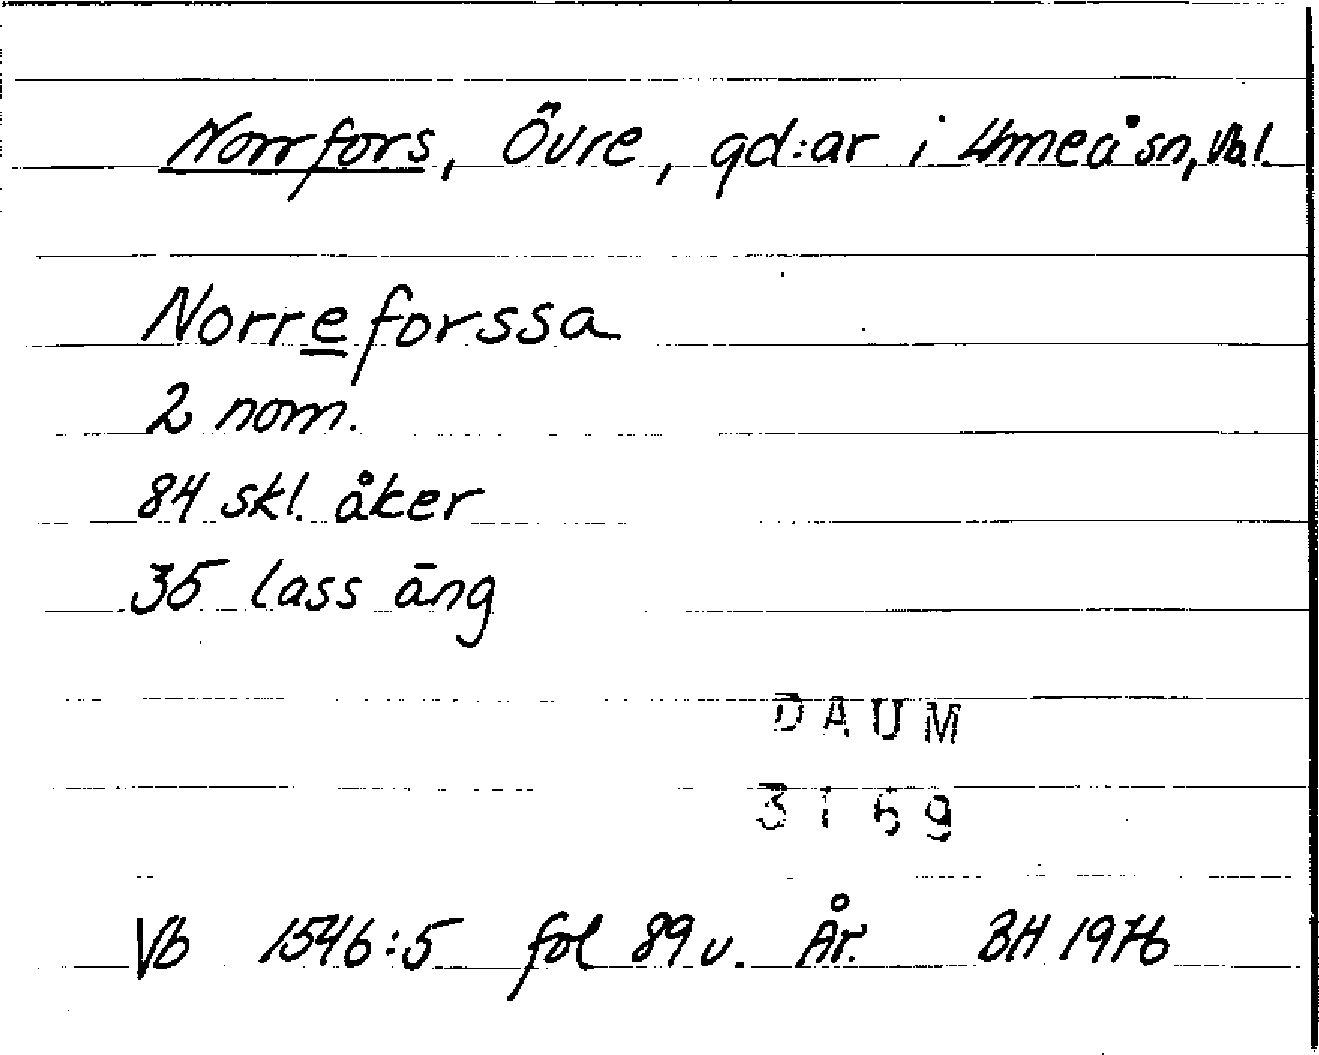 Norrfors, Övre, gd:ar i Umeå sn, Vb l.
Norreforssa
2 nom.
84 skl. åker
35 lass äng
DAUM
3169
Vb 1546:5 fol 89 v. År. BH 1976